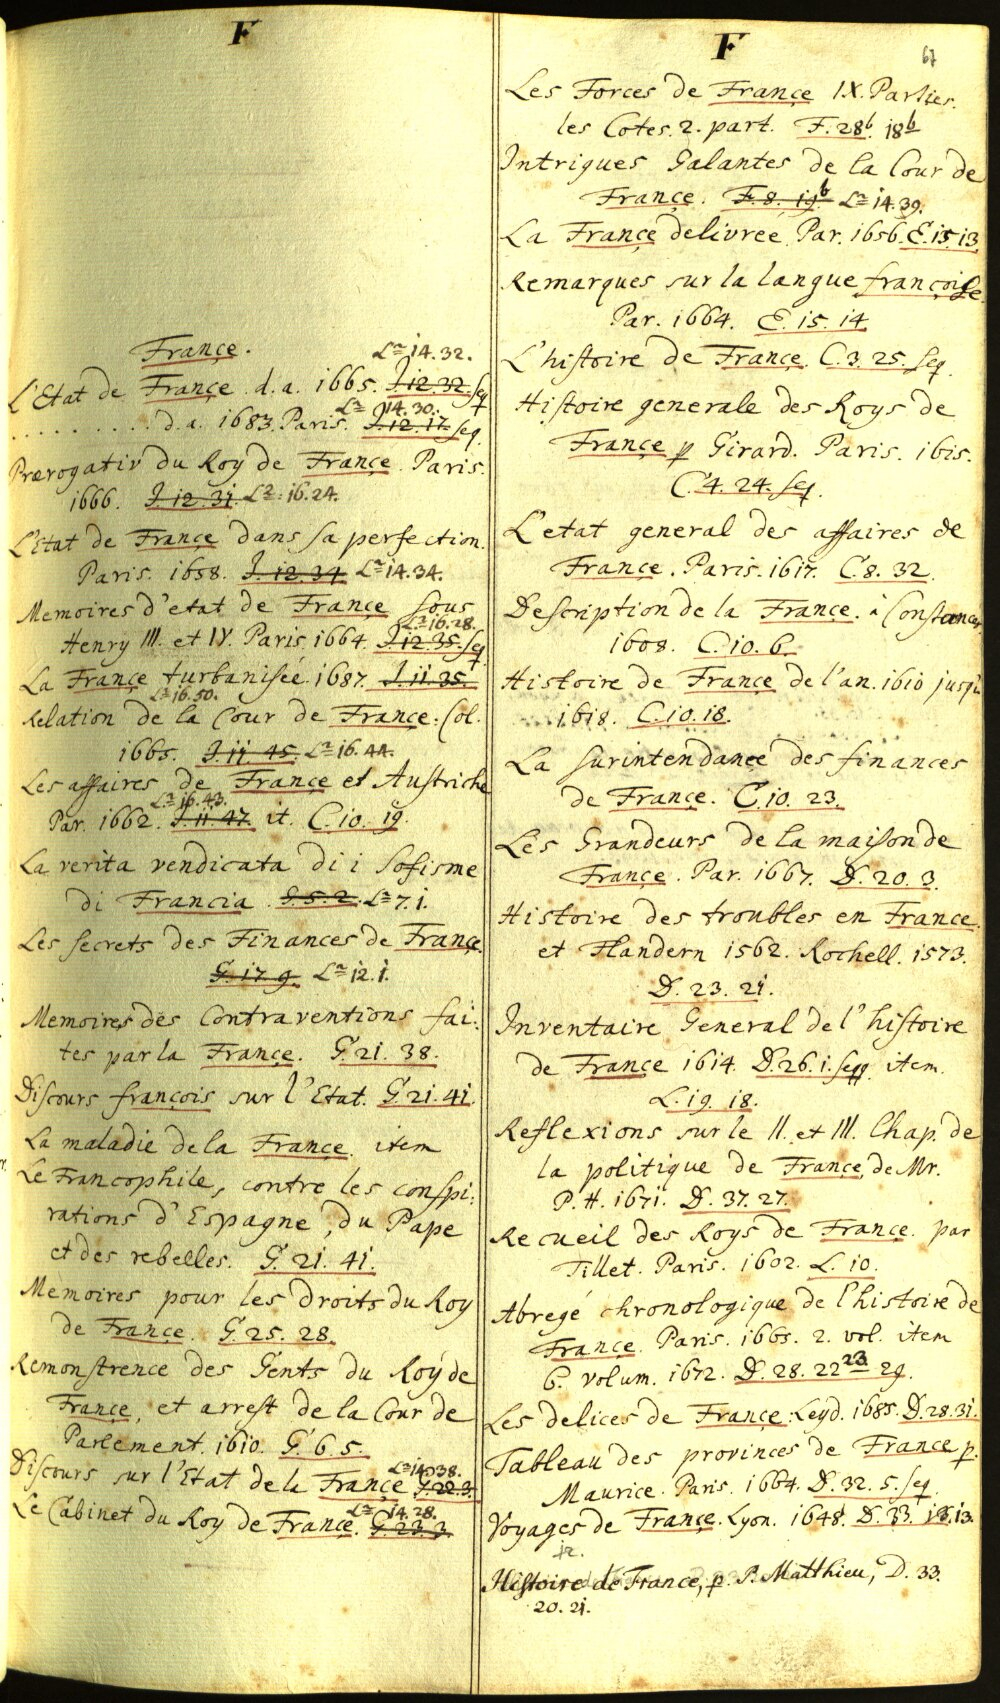 F
France.
Lª 14.32.
L'Etat de France d.a. 1665. J.12.32. seq
Lª 14.30.
. . . . . . . . d.a. 1683. Paris. J.12.17. seq.
Prærogativ du Roy de France. Paris.
1666. J.12.31. Lª 16.24.
L'Etat de France dans sa perfection.
Paris. 1658. J.12.34 Lª 14.34.
Memoires d'etat de France sous
Lª 16.28.
Henry III. et IV. Paris 1664. J.12.35. seq
La France turbanisée. 1687. J.11.35
Lª 16.50.
Relation de la Cour de France. Col.
1665. J.11.45. Lª 16.44.
Les affaires de France et Austriche
Lª 16.43.
Par. 1662. J.11.47. it. C.10.19.
La verita vendicata di i Sofisme
di Francia. G.5.2. Lª 7.1.
Les secrets des Finances de France.
G.17.9. Lª 12.1.
Memoires des Contraventions fai:
tes par la France. G.21.38.
Discours françois sur l'Etat. G.21.41.
La maladie de la France. item
Le Francophile, contre les conspi:
rations d'Espagne, du Pape
et des rebelles. G.21.41.
Memoires pour les droits du Roy
de France. G.25.28.
Remonstrence des Gents du Roy de
France, et arrest de la Cour de
Parlement. 1610. G.6.5.
Lª 14.38.
Discours sur l'Etat de la France G.22.3.
Lª 14.28.
Le Cabinet du Roy de France. G.23.3.
F
67
Les Forces de France IX. Parties.
les Cotes. 2. part. F.28b. 18b
Intrigues Galantes de la Cour de
France. F.8.19.b Lª 14.39.
La France delivrée Par. 1656. E.15.13
Remarques sur la langue françoise
Par. 1664. E.15.14
L'histoire de France. C.3.25. seq
Histoire generale des Roys de
France p Girard. Paris. 1615.
C.4.24. seq.
L'etat general des affaires de
France. Paris. 1617. C.8.32.
Description de la France. à Constance,
1608. C.10.6.
Histoire de France de l'an. 1610 jusqu
1618. C.10.18.
La surintendance des finances
de France. C.10.23.
Les Grandeurs de la maison de
France. Par. 1667. D.20.3.
Histoire des troubles en France.
et Flandern 1562. Rochell. 1573.
D.23.21.
Inventaire General de l'histoire
de France 1614. D.26.1. seqq. item.
L.19.18.
Reflexions sur le II. et III. Chap. de
la politique de France, de Mr.
P.H. 1671. D.37.27.
Recueil des Roys de France. par
Tillet. Paris. 1602. L.10.
Abregé chronologique de l'histoire de
France. Paris. 1665. 2. vol. item
6. volum. 1672. D.28.22 23 29.
Les delices de France. Leyd. 1685. D.28.31.
Tableau des provinces de France p.
Maurice. Paris. 1664. D.32.5. seq
Voyages de France. Lyon. 1648. D.33. 13.
12.
Histoire de France, p. P. Matthieu, D.33.
20.21.